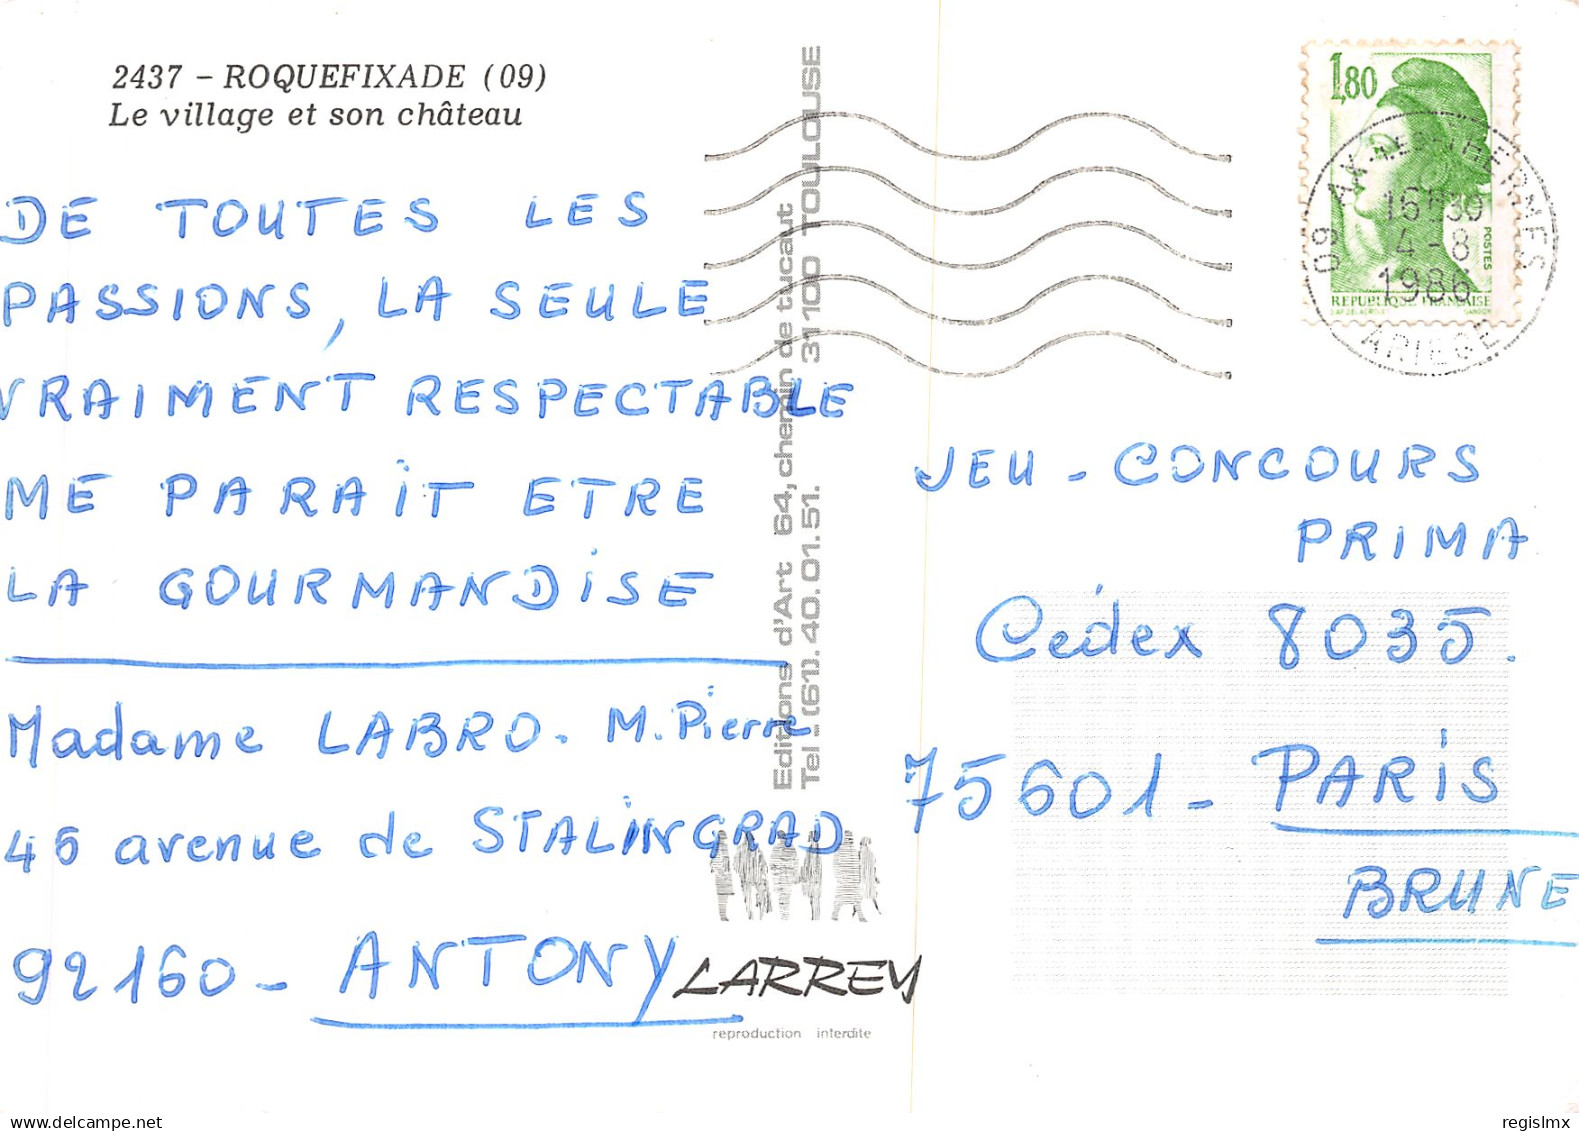 2437 - ROQUEFIXADE (09)
Le village et son château
DE TOUTES LES
PASSIONS, LA SEULE
VRAIMENT RESPECTABLE
ME PARAIT ETRE
LA GOURMANDISE
Madame LABRO. M. Pierre
45 avenue de STALINGRAD
92160 - ANTONY
Editions d'Art 64, chemin de tucaut
Tel. (61). 40.01.51. 31100 TOULOUSE
LARREY
reproduction interdite
1,80
POSTES
REPUBLIQUE FRANÇAISE
GANDON
09 AX-LES-THERMES
15H30
4-8
1986
ARIEGE
JEU - CONCOURS
PRIMA
Cédex 8035.
75601 - PARIS
BRUNE
regislmx